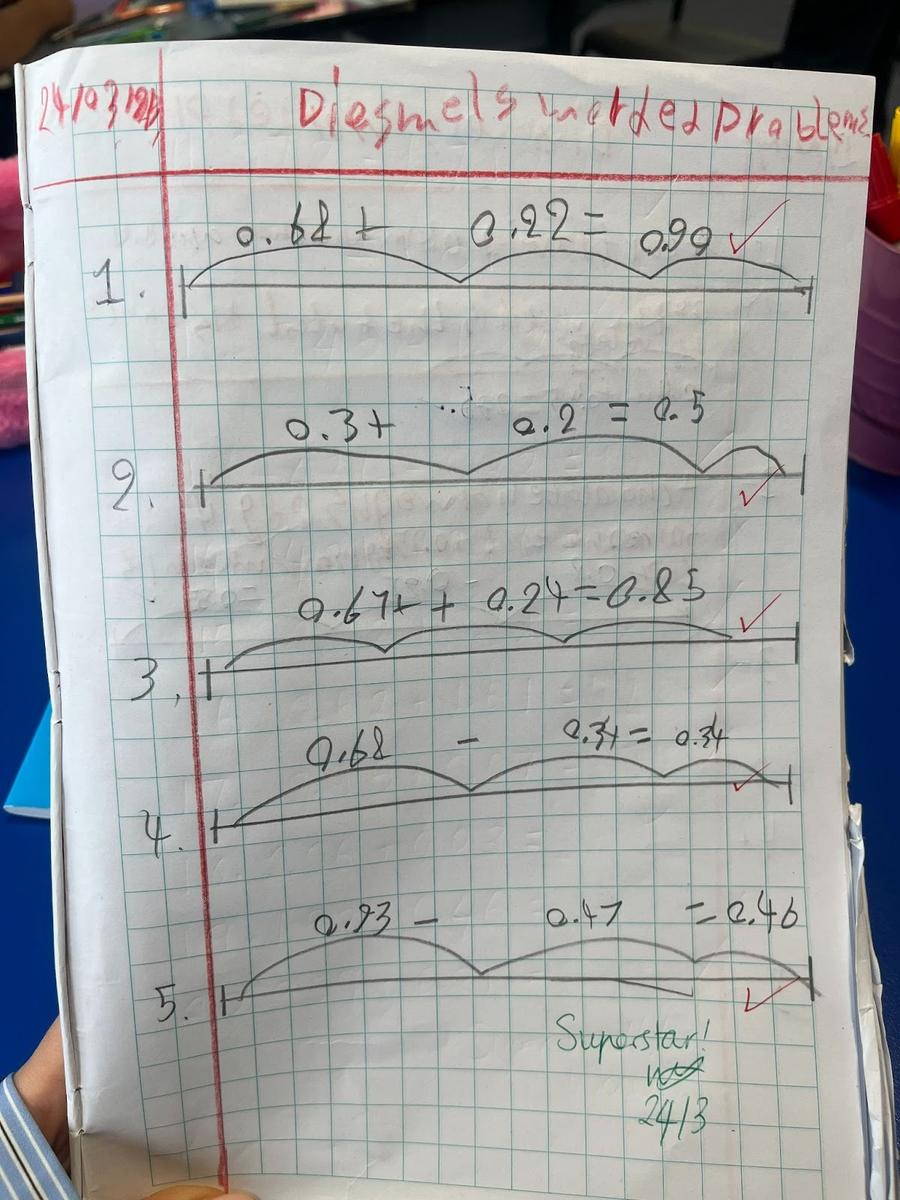 24/03/26 Diesmels worded problems
0.68 + 0.22 = 0.90
1.
0.3 + 0.2 = 0.5
2.
0.67 + + 0.24 = 0.85
3.
0.68 - 0.34 = 0.34
4.
0.93 - 0.47 = 0.46
5.
Superstar!
24/3